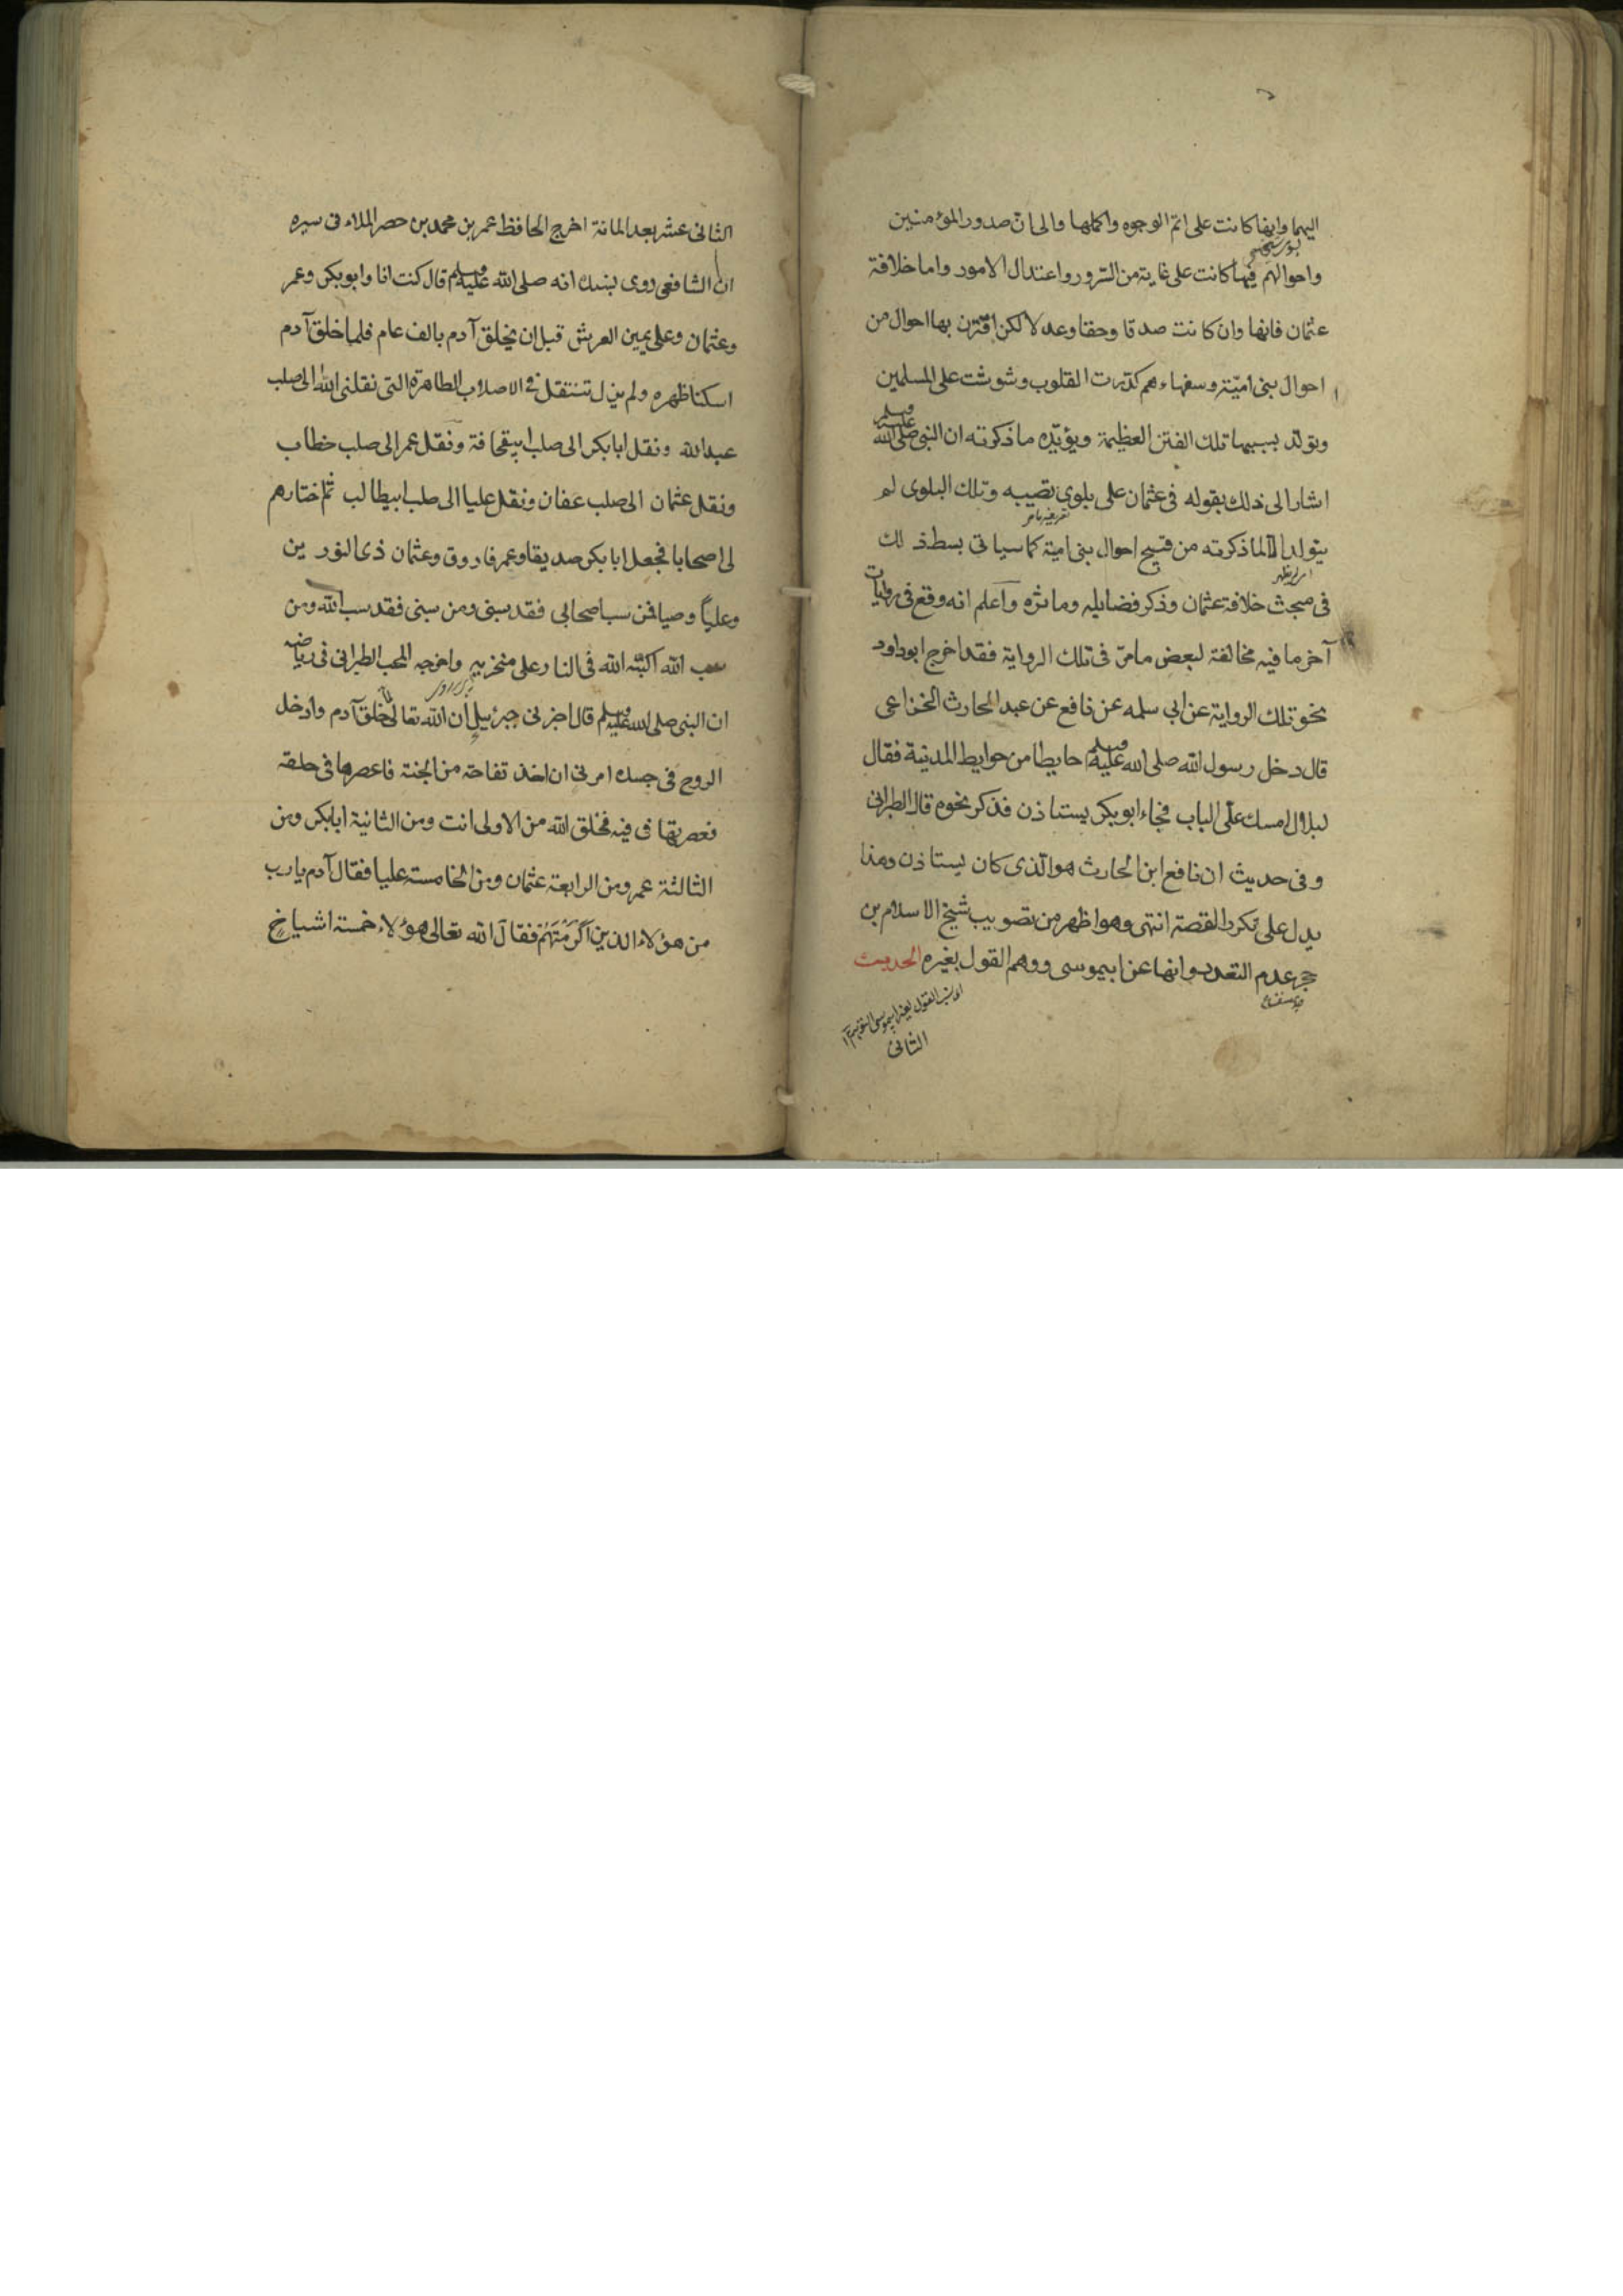 اليهما وانها كانت على اتم الوجوه واكملها والى ان صدور المؤمنين
واحوالهم فيها كانت على غاية من السرور واعتدال الامور واما خلافة
عثمان فانها وان كانت صدقا وحقا وعدلا لكن اقترن بها احوال من
احوال بنى امية وسفهاءهم كدرت القلوب وشوشت على المسلمين
وتولد بسببها تلك الفتن العظيمة ويؤيده ما ذكرته ان النبى صلى الله عليه وسلم
اشار الى ذلك بقوله فى عثمان على بلوى تصيبه وتلك البلوى لم
يتولد الا لما ذكرته من قبيح احوال بنى امية كما سياتى بسط ذلك
فى مبحث خلافة عثمان وذكر فضايله وماثره واعلم انه وقع فى روايات
آخر ما فيه مخالفة لبعض ما مر فى تلك الرواية فقد اخرج ابوداود
نحو تلك الرواية عن ابى سلمه عن نافع عن عبد الحارث الخزاعى
قال دخل رسول الله صلى الله عليه وسلم حايطا من حوايط المدينة فقال
لبلال امسك على الباب فجاء ابو بكر يستاذن فذكر نحوه قال الطبرانى
وفى حديث ان نافع ابن الحارث هو الذى كان يستاذن وهذا
يدل على تكرر القصة انتهى وهو اظهر من تصويب شيخ الاسلام بن
حجر عدم التعدد وانها عن ابيموسى ووهم القول بغيره الحديث
الثانى
الثانى عشر بعد المائة اخرج الحافظ عمر بن محمد بن خضر الملاء فى سيره
ان الشافعى روى بسنده انه صلى الله عليه وسلم قال كنت انا وابو بكر وعمر
وعثمان وعلى يمين العرش قبل ان يخلق آدم بالف عام فلما خلق آدم
اسكنا ظهره ولم يزل تنتقل فى الاصلاب الطاهرة التى نقلنى الله الى صلب
عبدالله ونقل ابا بكر الى صلب ابيقحافة ونقل عمر الى صلب خطاب
ونقل عثمان الى صلب عفان ونقل عليا الى صلب ابيطالب ثم اختارهم
لى اصحابا فجعل ابا بكر صديقا وعمر فاروق وعثمان ذى النورين
وعلياً وصيا فمن سب اصحابى فقد سبنى ومن سبنى فقد سب الله ومن
سب الله اكبه الله فى النار على منخريه واخرجه المحب الطبرانى فى رياضه
ان النبى صلى الله عليه وسلم قال اخبرنى جبرئيل ان الله تعالى لما خلق آدم وادخل
الروح فى جسده امرنى ان اخذ تفاحة من الجنة فاعصرها فى حلقه
فعصرتها فى فيه فخلق الله من الاولى انت ومن الثانية ابابكر ومن
الثالثة عمر ومن الرابعة عثمان ومن الخامسة عليا فقال آدم يارب
من هؤلاء الذين اكرمتهم فقال الله تعالى هؤلاء خمسة اشياخ